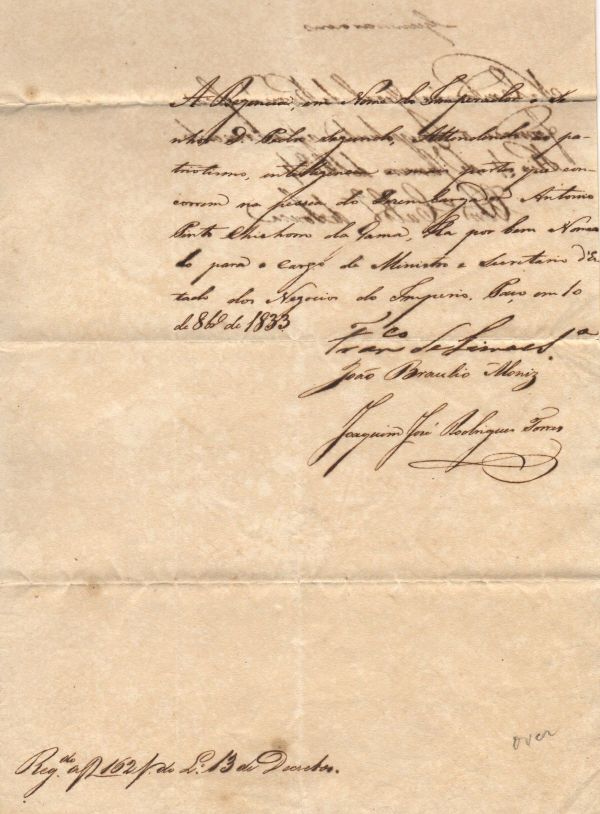 A Regencia, em Nome do Imperador o Se
nhor D. Pedro Segundo, Attendendo ao pa
triotismo, intelligencia e mais partes, que con
correm na pessoa do Dezembargador Antonio
Pinto Chichorro da Gama, Ha por bem Nomea
lo para o cargo de Ministro e Secretario d'Es
tado dos Negocios do Imperio. Paço em 10
de 8bro de 1833
Franco de Lima e Sa
João Braulio Moniz
Joaquim José Rodrigues Torres
over
Regdo a f 162 do Lo 13 de Decretos.